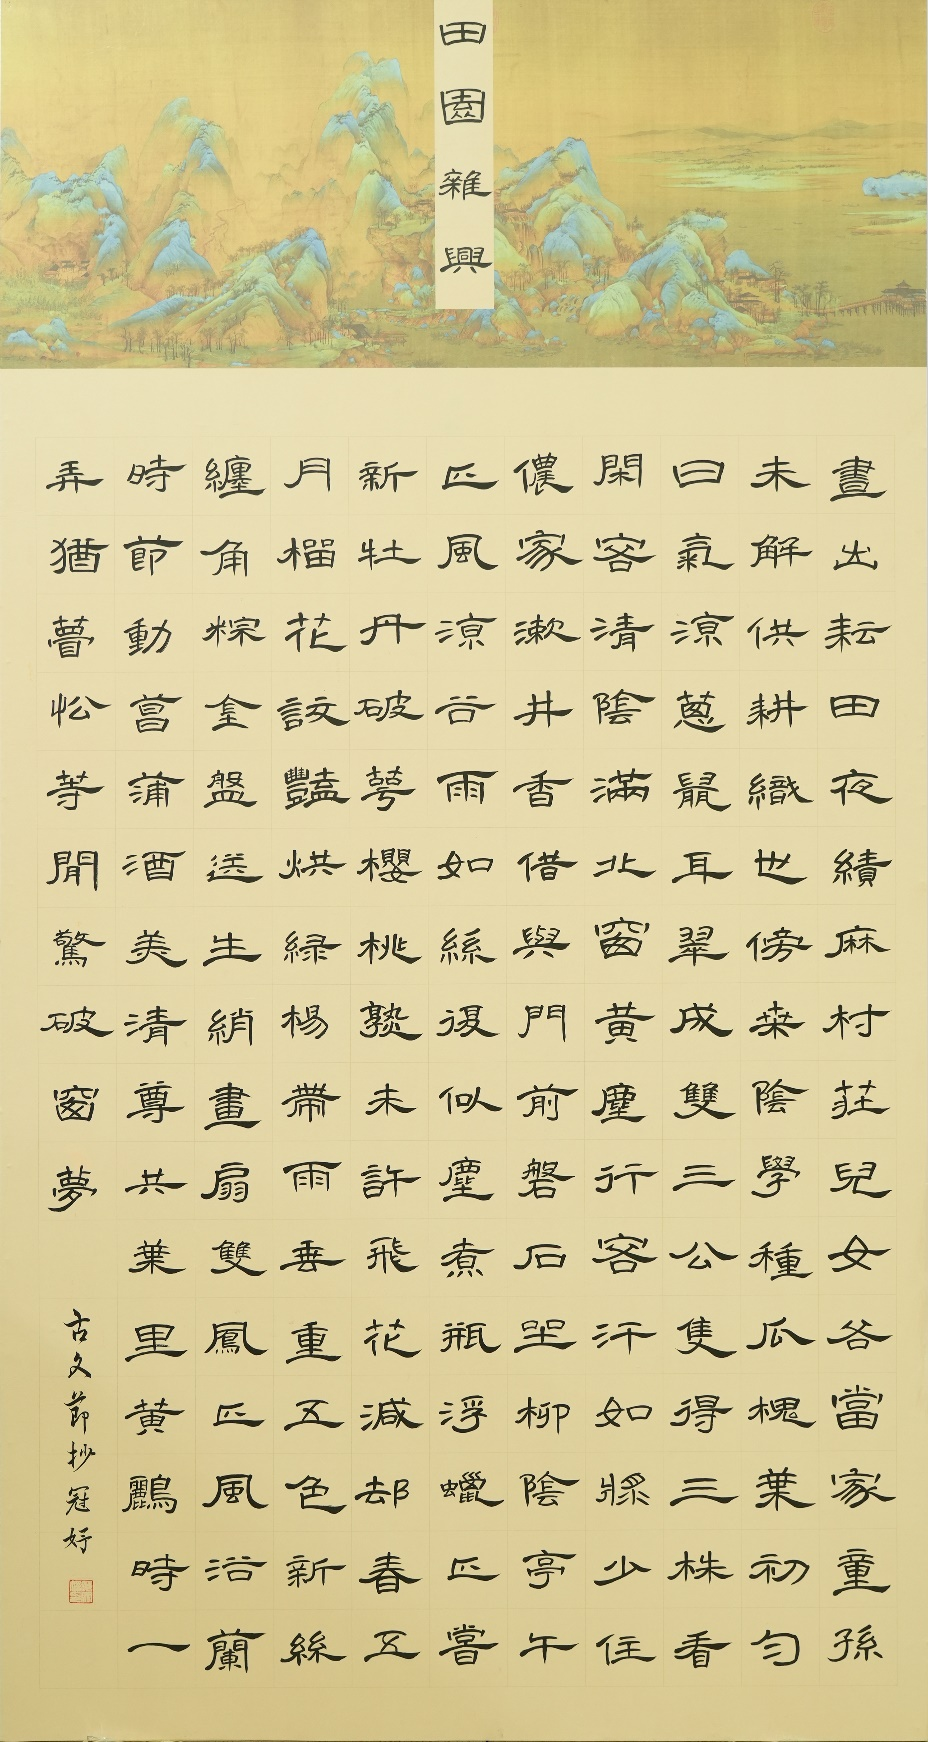 田園雜興
晝出耘田夜績麻村莊兒女各當家童孫
未解供耕織也傍桑陰學種瓜槐葉初勻
日氣涼蔥龍耳翠成雙三公隻得三株看
閑客清陰滿北窗黃塵行客汗如漿少住
儂家漱井香借與門前磐石坐柳陰亭午
正風涼谷雨如絲復似塵煮瓶浮蠟正嘗
新牡丹破萼櫻桃熟未許飛花減却春五
月榴花設豔烘綠楊帶雨垂重五色新絲
纏角粽金盤送生綃畫扇雙鳳正風浴蘭
時節動菖蒲酒美清尊共葉里黃鸝時一
弄猶瞢忪等閒驚破窗夢
古文節抄冠妤